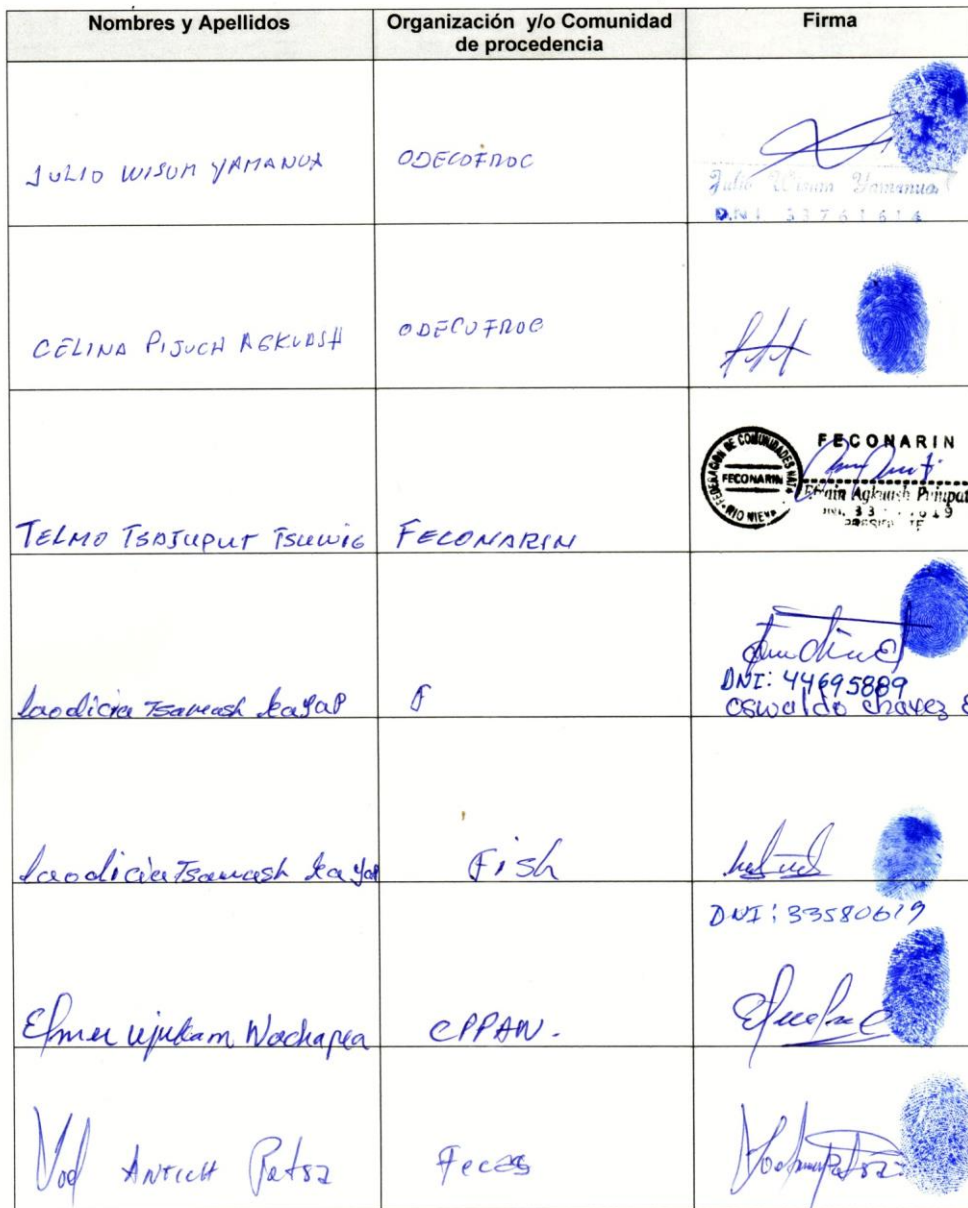 Nombres y Apellidos
Organización y/o Comunidad
de procedencia
Firma
JULIO WISUM YAMANUA
ODECOFROC
Julio Wisum Yamanua
D.N.I. 33761614
CELINA PIJUCH AGKUASH
ODECOFROC
TELMO TSAJUPUT TSUWIG
FECONARIN
FEDERACION DE COMUNIDADES NATI
FECONARIN
RIO NIEVA
FECONARIN
Efrain Agkuash
Laodicia Tsamash Kayap
F
DNI: 44695889
Oswaldo Chavez
Laodicia Tsamash Kayap
Fish
DNI: 33580619
Elmer Ujukam Wachapea
CPPAW.
Yoel ANTICH Petsa